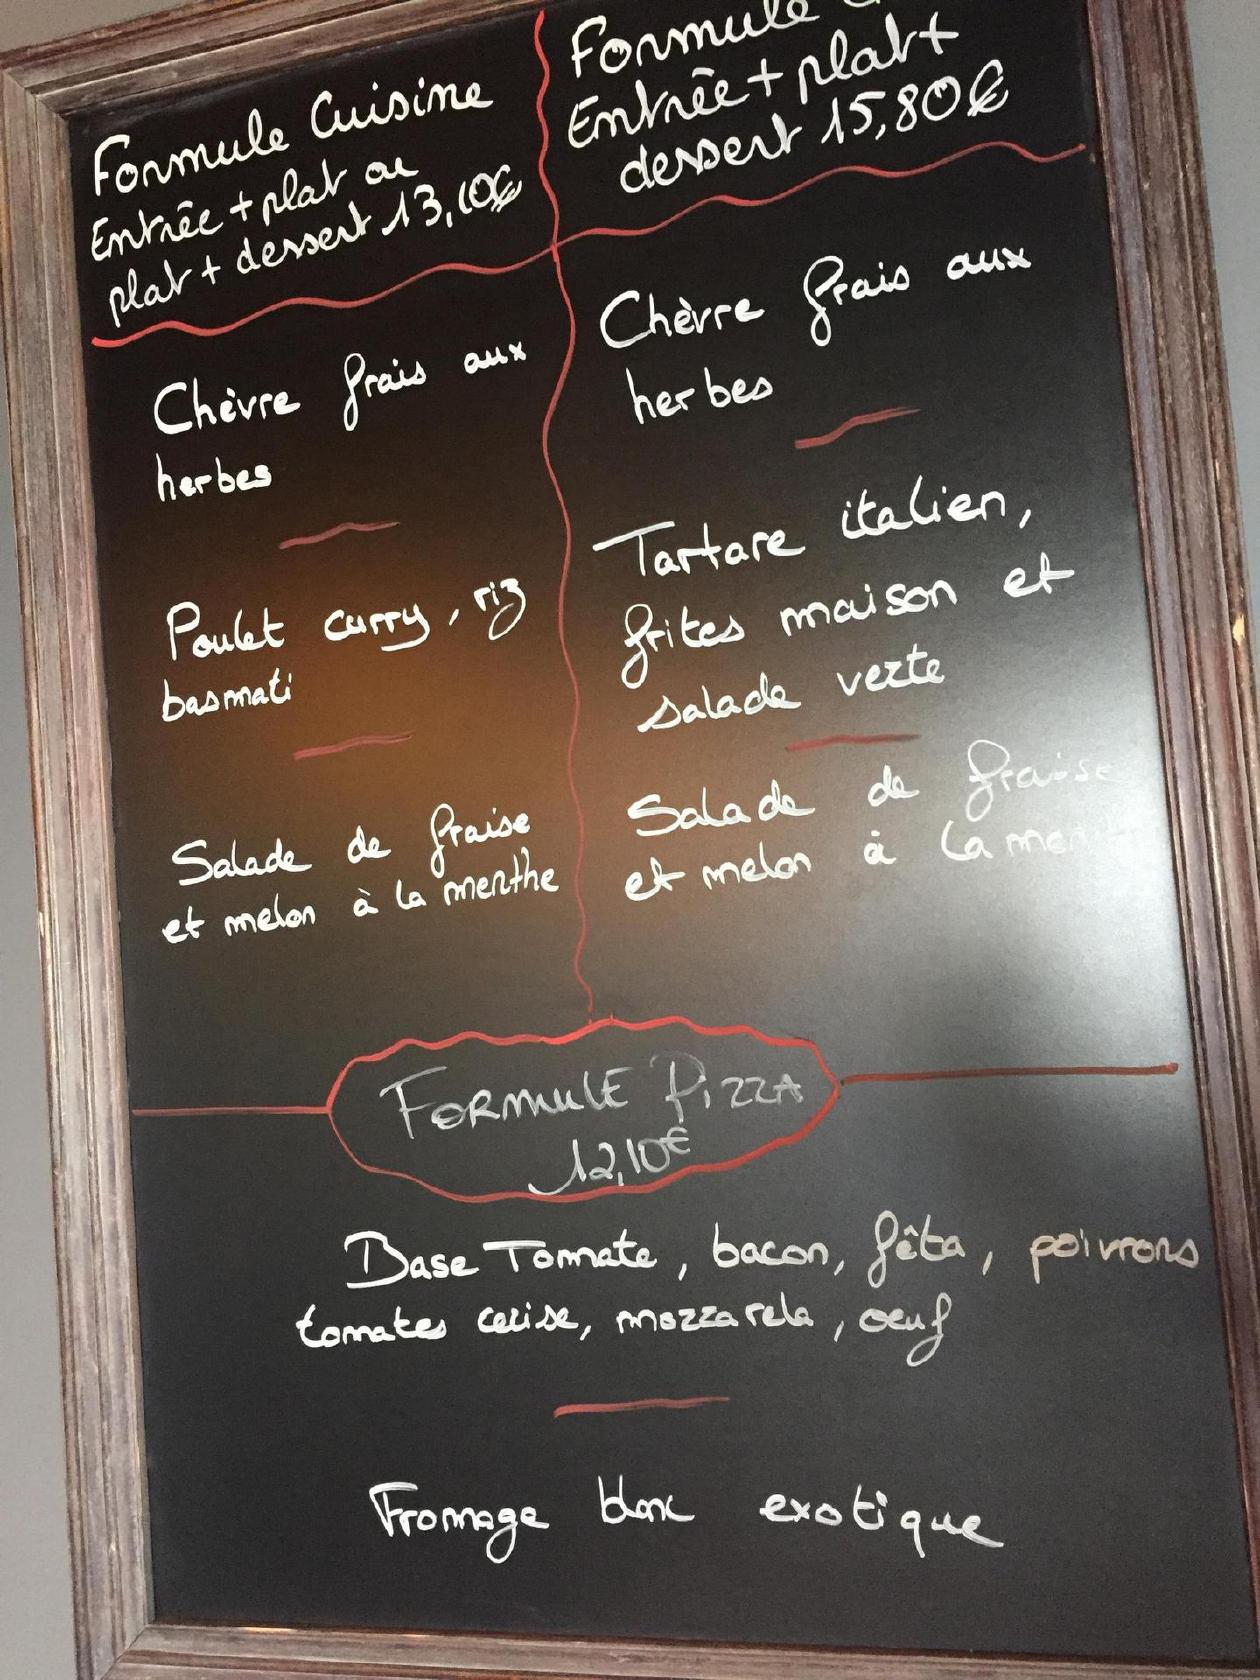 Formule Cuisine
Entrée + plat ou
plat + dessert 13,10€
Chèvre frais aux
herbes
Poulet curry, riz
basmati
Salade de fraise
et melon à la menthe
Formule
Entrée + plat +
dessert 15,80€
Chèvre frais aux
herbes
Tartare italien,
frites maison et
salade verte
Salade de fraise
et melon à la
FORMULE PIZZA
12,10€
Base Tomate, bacon, fêta, poivrons
tomates cerise, mozzarela, oeuf
Fromage blanc exotique